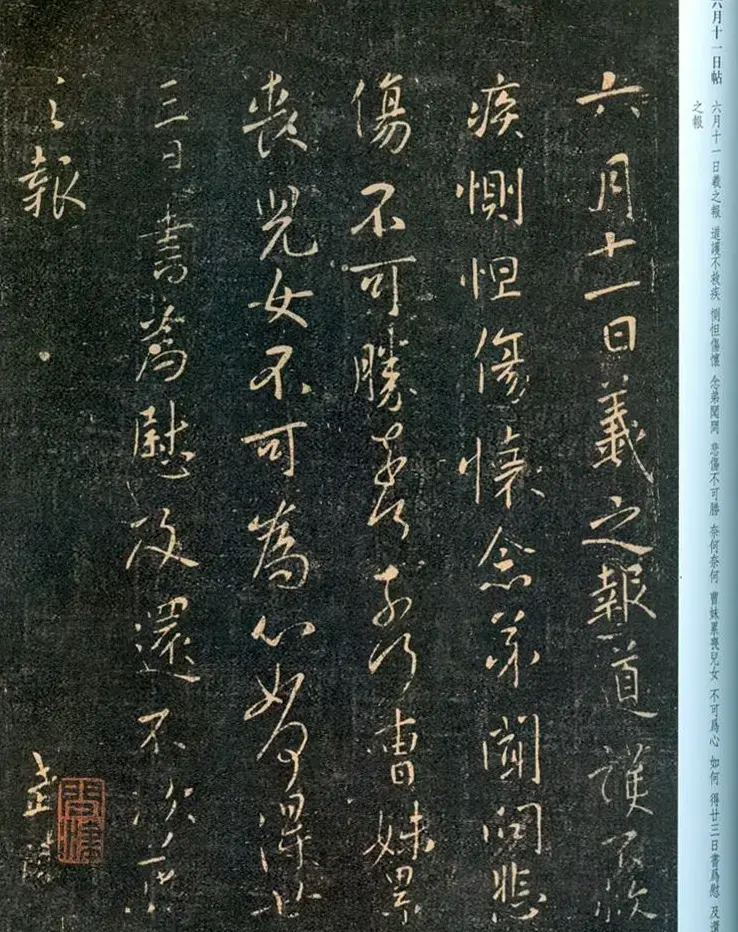 六月十一日帖
六月十一日羲之報 道護不救疾 惻怛傷懷 念弟聞問 悲傷不可勝 奈何奈何 曹妹累喪兒女 不可爲心 如何 得廿三日書爲慰 及還
之報
六月十一日羲之報道護不救
疾惻怛傷懷念弟聞問悲
傷不可勝奈何奈何曹妹累
喪兒女不可為心如何得廿
三日書為慰及還不次羲
之報